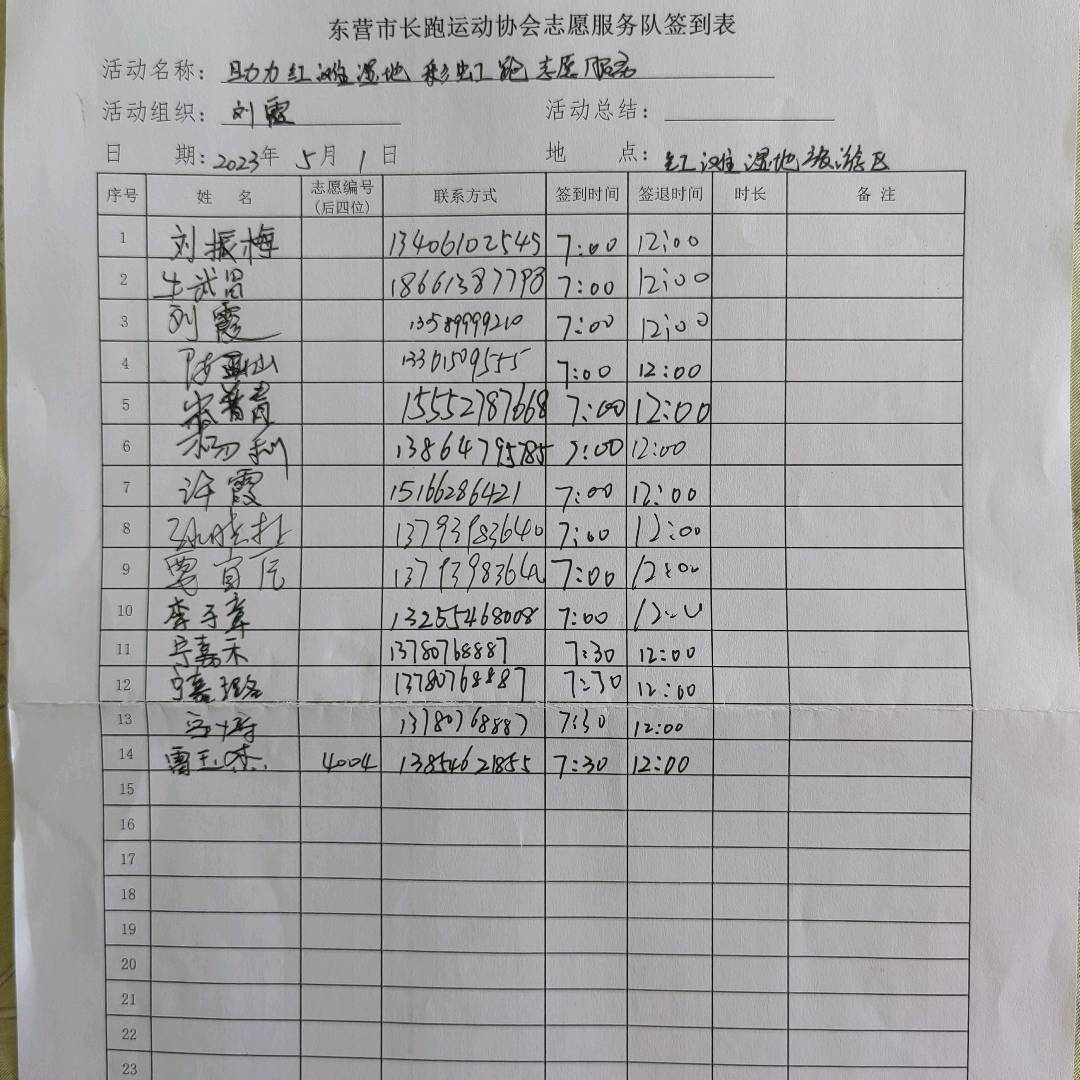 东营市长跑运动协会志愿服务队签到表
活动名称: 助力红滩湿地 彩虹跑志愿服务
活动组织: 刘霞 活动总结:
日 期: 2023年 5月 1日 地 点: 红滩湿地旅游区
序号 姓 名 志愿编号(后四位) 联系方式 签到时间 签退时间 时长 备 注
1 刘振梅 13406102545 7:00 12:00
2 18661387798 7:00 12:00
3 刘霞 13589999210 7:00 12:00
4 13361509555 7:00 12:00
5 15552787668 7:00 12:00
6 杨利 13864795785 7:00 12:00
7 许霞 15166286421 7:00 12:00
8 13793983640 7:00 12:00
9 7:00 12:00
10 李子章 13255468008 7:00 12:00
11 宁嘉禾 13780768887 7:30 12:00
12 13780768887 7:30 12:00
13 13780768887 7:30 12:00
14 雷玉杰 4004 13854621855 7:30 12:00
15
16
17
18
19
20
21
22
23